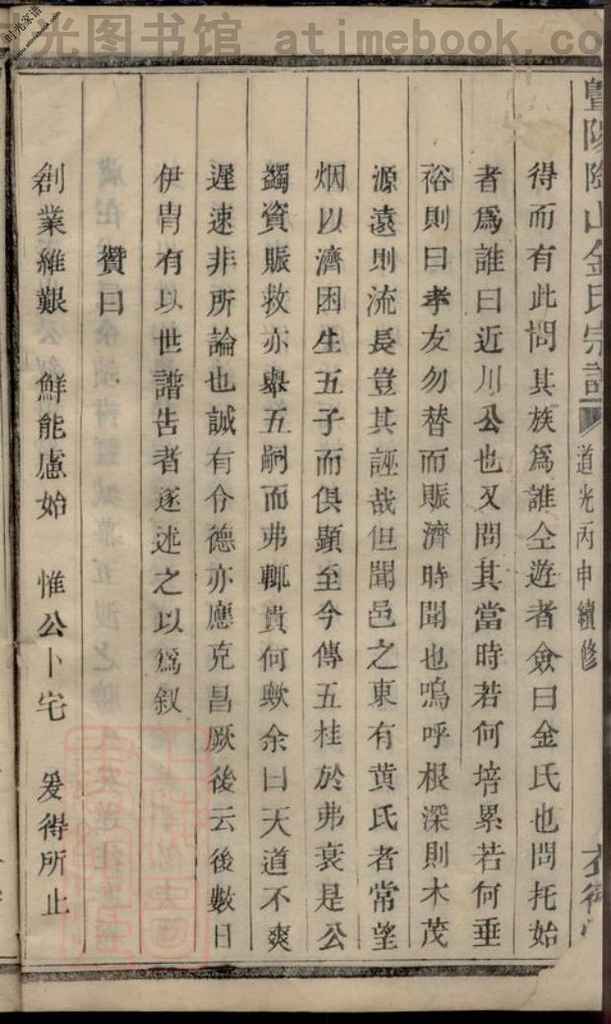 光图书馆 atimebook.com
时光家谱
暨陽陶山金氏宗譜 道光丙申續修
得而有此問其族爲誰仝遊者僉曰金氏也問托始
者爲誰曰近川公也又問其當時若何培累若何垂
裕則曰孝友勿替而賑濟時聞也嗚呼根深則木茂
源遠則流長豈其誣哉但聞邑之東有黄氏者常望
烟以濟困生五子而俱顯至今傳五桂於弗衰是公
蠲資賑救亦舉五嗣而弗輒貴何歟余曰天道不爽
遲速非所論也誠有令德亦應克昌厥後云後數日
伊冑有以世譜告者遂述之以爲叙
贊曰
創業維艱 鮮能慮始 惟公卜宅 爰得所止